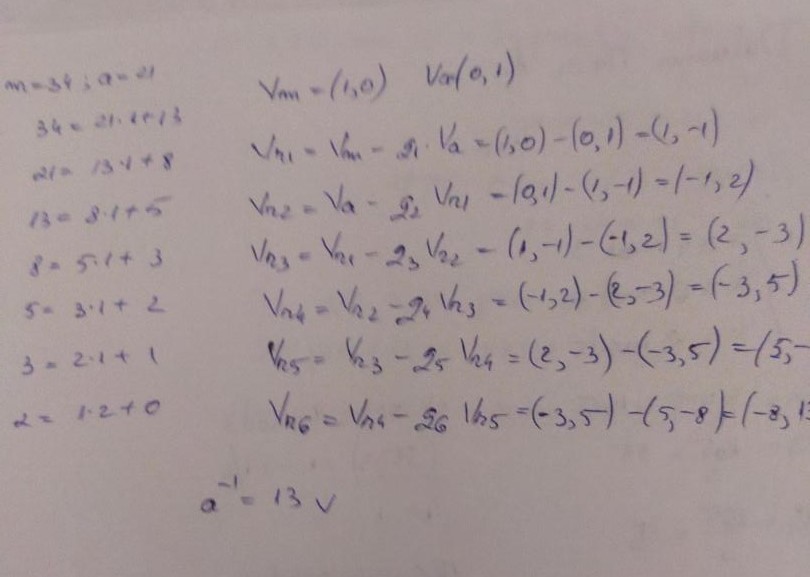 m=34; a=21
34=21·1+13
21=13·1+8
13=8·1+5
8=5·1+3
5=3·1+2
3=2·1+1
2=1·2+0
Vm=(1,0) Va(0,1)
Vr1=Vm-q1·Va=(1,0)-(0,1)=(1,-1)
Vr2=Va-q2 Vr1=(0,1)-(1,-1)=(-1,2)
Vr3=Vr1-q3 Vr2=(1,-1)-(-1,2)=(2,-3)
Vr4=Vr2-q4 Vr3=(-1,2)-(2,-3)=(-3,5)
Vr5=Vr3-q5 Vr4=(2,-3)-(-3,5)=(5,-
Vr6=Vr4-q6 Vr5=(-3,5)-(5,-8)=(-8,13
a⁻¹=13 v